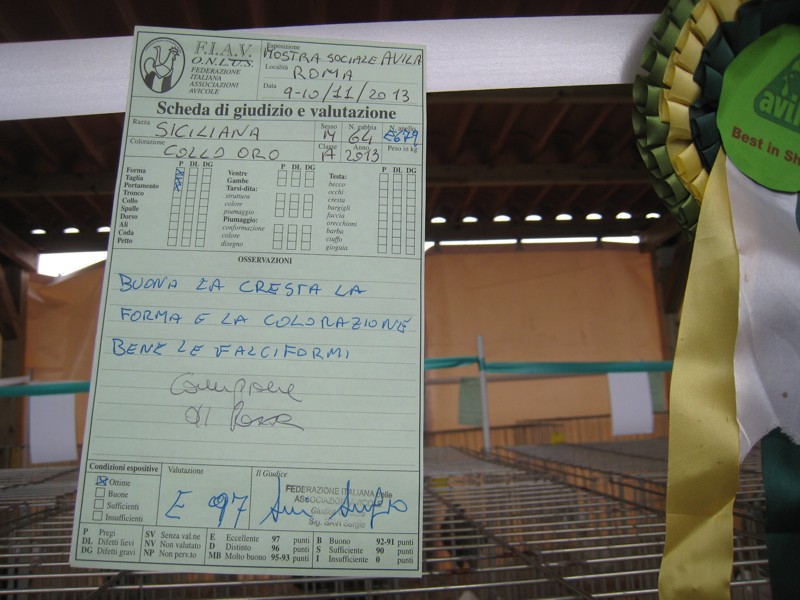 F.I.A.V.
O.N.L.U.S.
FEDERAZIONE
ITALIANA
ASSOCIAZIONI
AVICOLE
Esposizione
MOSTRA SOCIALE AVILA
Località
ROMA
Data 9-10/11/2013
Scheda di giudizio e valutazione
Razza SICILIANA
Sesso M
N. gabbia 64
N. anello
Colorazione COLLO ORO
Classe A
Anno 2013
Peso in kg
P DL DG
Forma
Taglia
Portamento
Tronco
Collo
Spalle
Dorso
Ali
Coda
Petto
P DL DG
Ventre
Gambe
Tarsi-dita:
struttura
colore
piumaggio
Piumaggio:
conformazione
colore
disegno
P DL DG
Testa:
becco
occhi
cresta
bargigli
faccia
orecchioni
barba
ciuffo
giogaia
OSSERVAZIONI
BUONA LA CRESTA LA
FORMA E LA COLORAZIONE
BENE LE FALCIFORMI
Campione
di Razza
Condizioni espositive
Ottime
Buone
Sufficienti
Insufficienti
Valutazione
E 97
Il Giudice
FEDERAZIONE ITALIANA delle
ASSOCIAZIONI AVICOLE
P Pregi
DL Difetti lievi
DG Difetti gravi
SV Senza val.ne
NV Non valutato
NP Non perv.to
E Eccellente 97 punti
D Distinto 96 punti
MB Molto buono 95-93 punti
B Buono 92-91 punti
S Sufficiente 90 punti
I Insufficiente 0 punti
Best in Sh